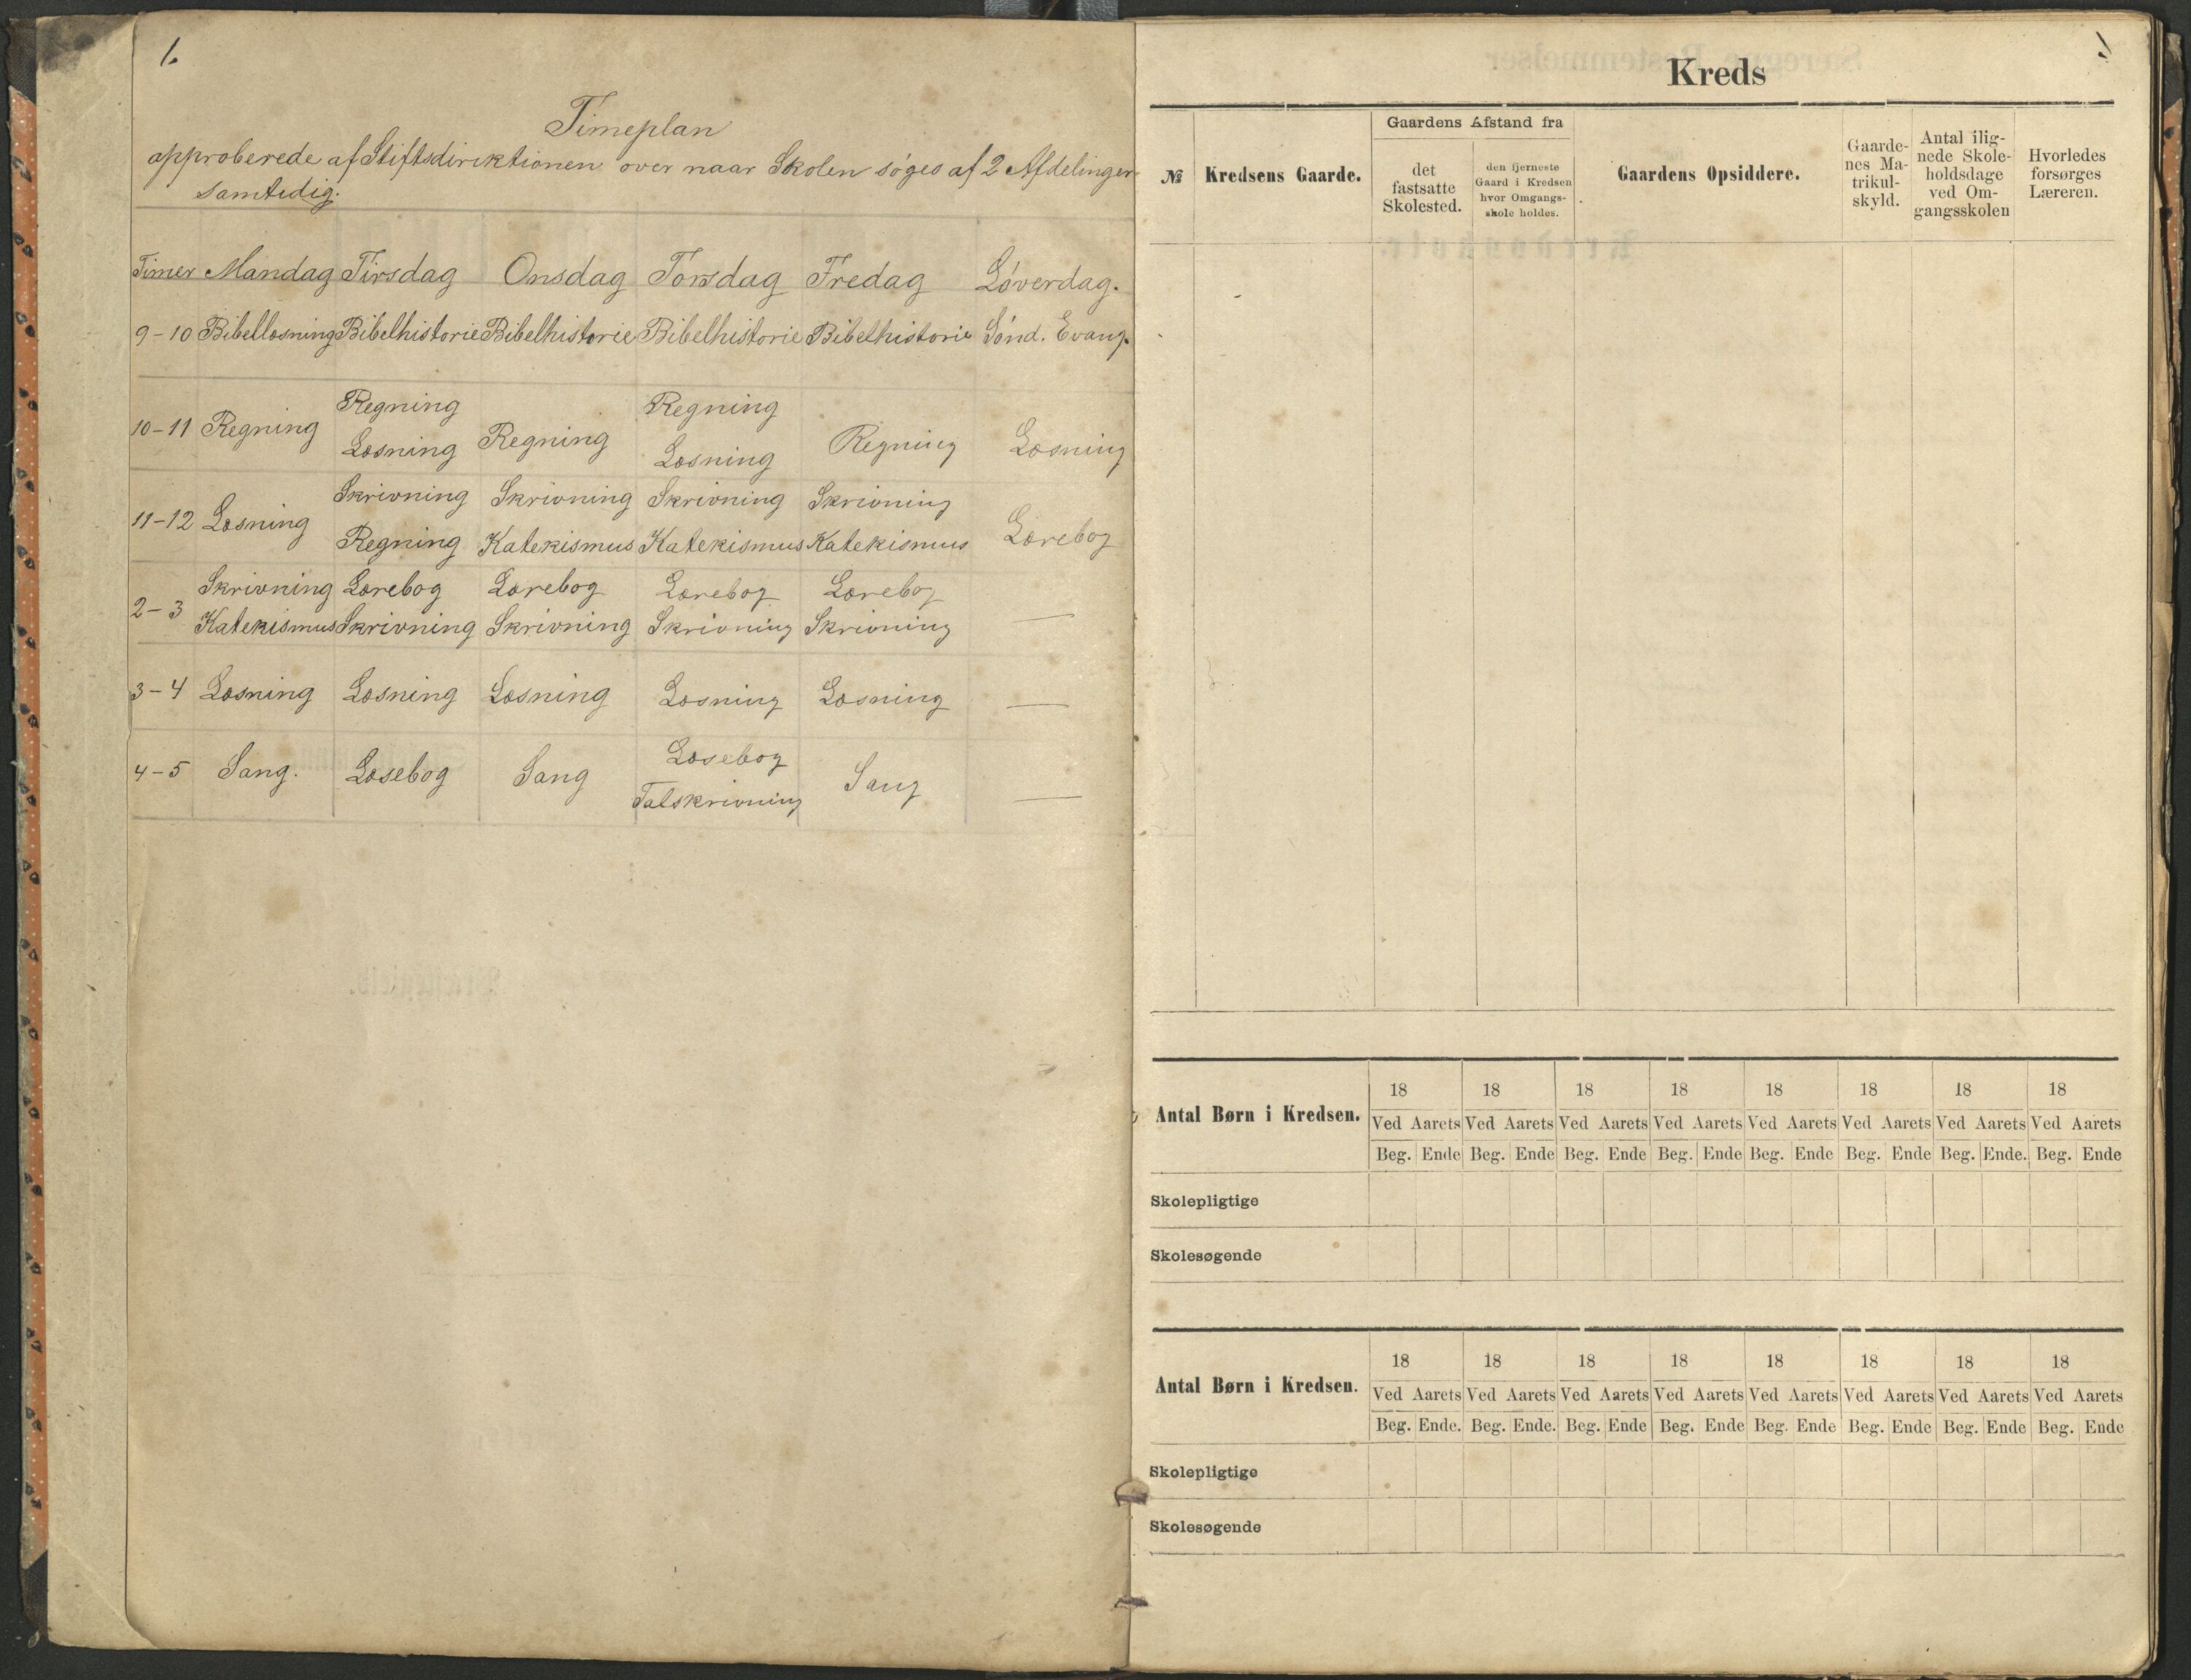 1.
Timeplan
approberede af Stiftsdirektionen over naar Skolen søges af 2 Afdelinger
samtidig.
Timer Mandag Tirsdag Onsdag Torsdag Fredag Løverdag.
9-10 Bibellæsning Bibelhistorie Bibelhistorie Bibelhistorie Bibelhistorie Sønd. Evang.
10-11 Regning Regning Læsning Regning Regning Læsning Regning Læsning
11-12 Læsning Skrivning Regning Skrivning Katekismus Skrivning Katekismus Skrivning Katekismus Lærebog
2-3 Skrivning Katekismus Lærebog Skrivning Lærebog Skrivning Lærebog Skrivning Lærebog Skrivning —
3-4 Læsning Læsning Læsning Læsning Læsning —
4-5 Sang. Læsebog Sang Læsebog Talskrivning Sang —
Kreds
№ Kredsens Gaarde.
Gaardens Afstand fra
det
fastsatte
Skolested.
den fjerneste
Gaard i Kredsen
hvor Omgangs-
skole holdes.
Gaardens Opsiddere.
Gaarde-
nes Ma-
trikul-
skyld.
Antal ilig-
nede Skole-
holdsdage
ved Om-
gangsskolen
Hvorledes
forsørges
Læreren.
18 18 18 18 18 18 18 18
Antal Børn i Kredsen.
Ved Aarets Ved Aarets Ved Aarets Ved Aarets Ved Aarets Ved Aarets Ved Aarets Ved Aarets
Beg. Ende Beg. Ende Beg. Ende Beg. Ende Beg. Ende Beg. Ende Beg. Ende. Beg. Ende
Skolepligtige
Skolesøgende
18 18 18 18 18 18 18 18
Antal Børn i Kredsen.
Ved Aarets Ved Aarets Ved Aarets Ved Aarets Ved Aarets Ved Aarets Ved Aarets Ved Aarets
Beg. Ende. Beg. Ende. Beg. Ende Beg. Ende Beg. Ende Beg. Ende Beg. Ende Beg. Ende
Skolepligtige
Skolesøgende